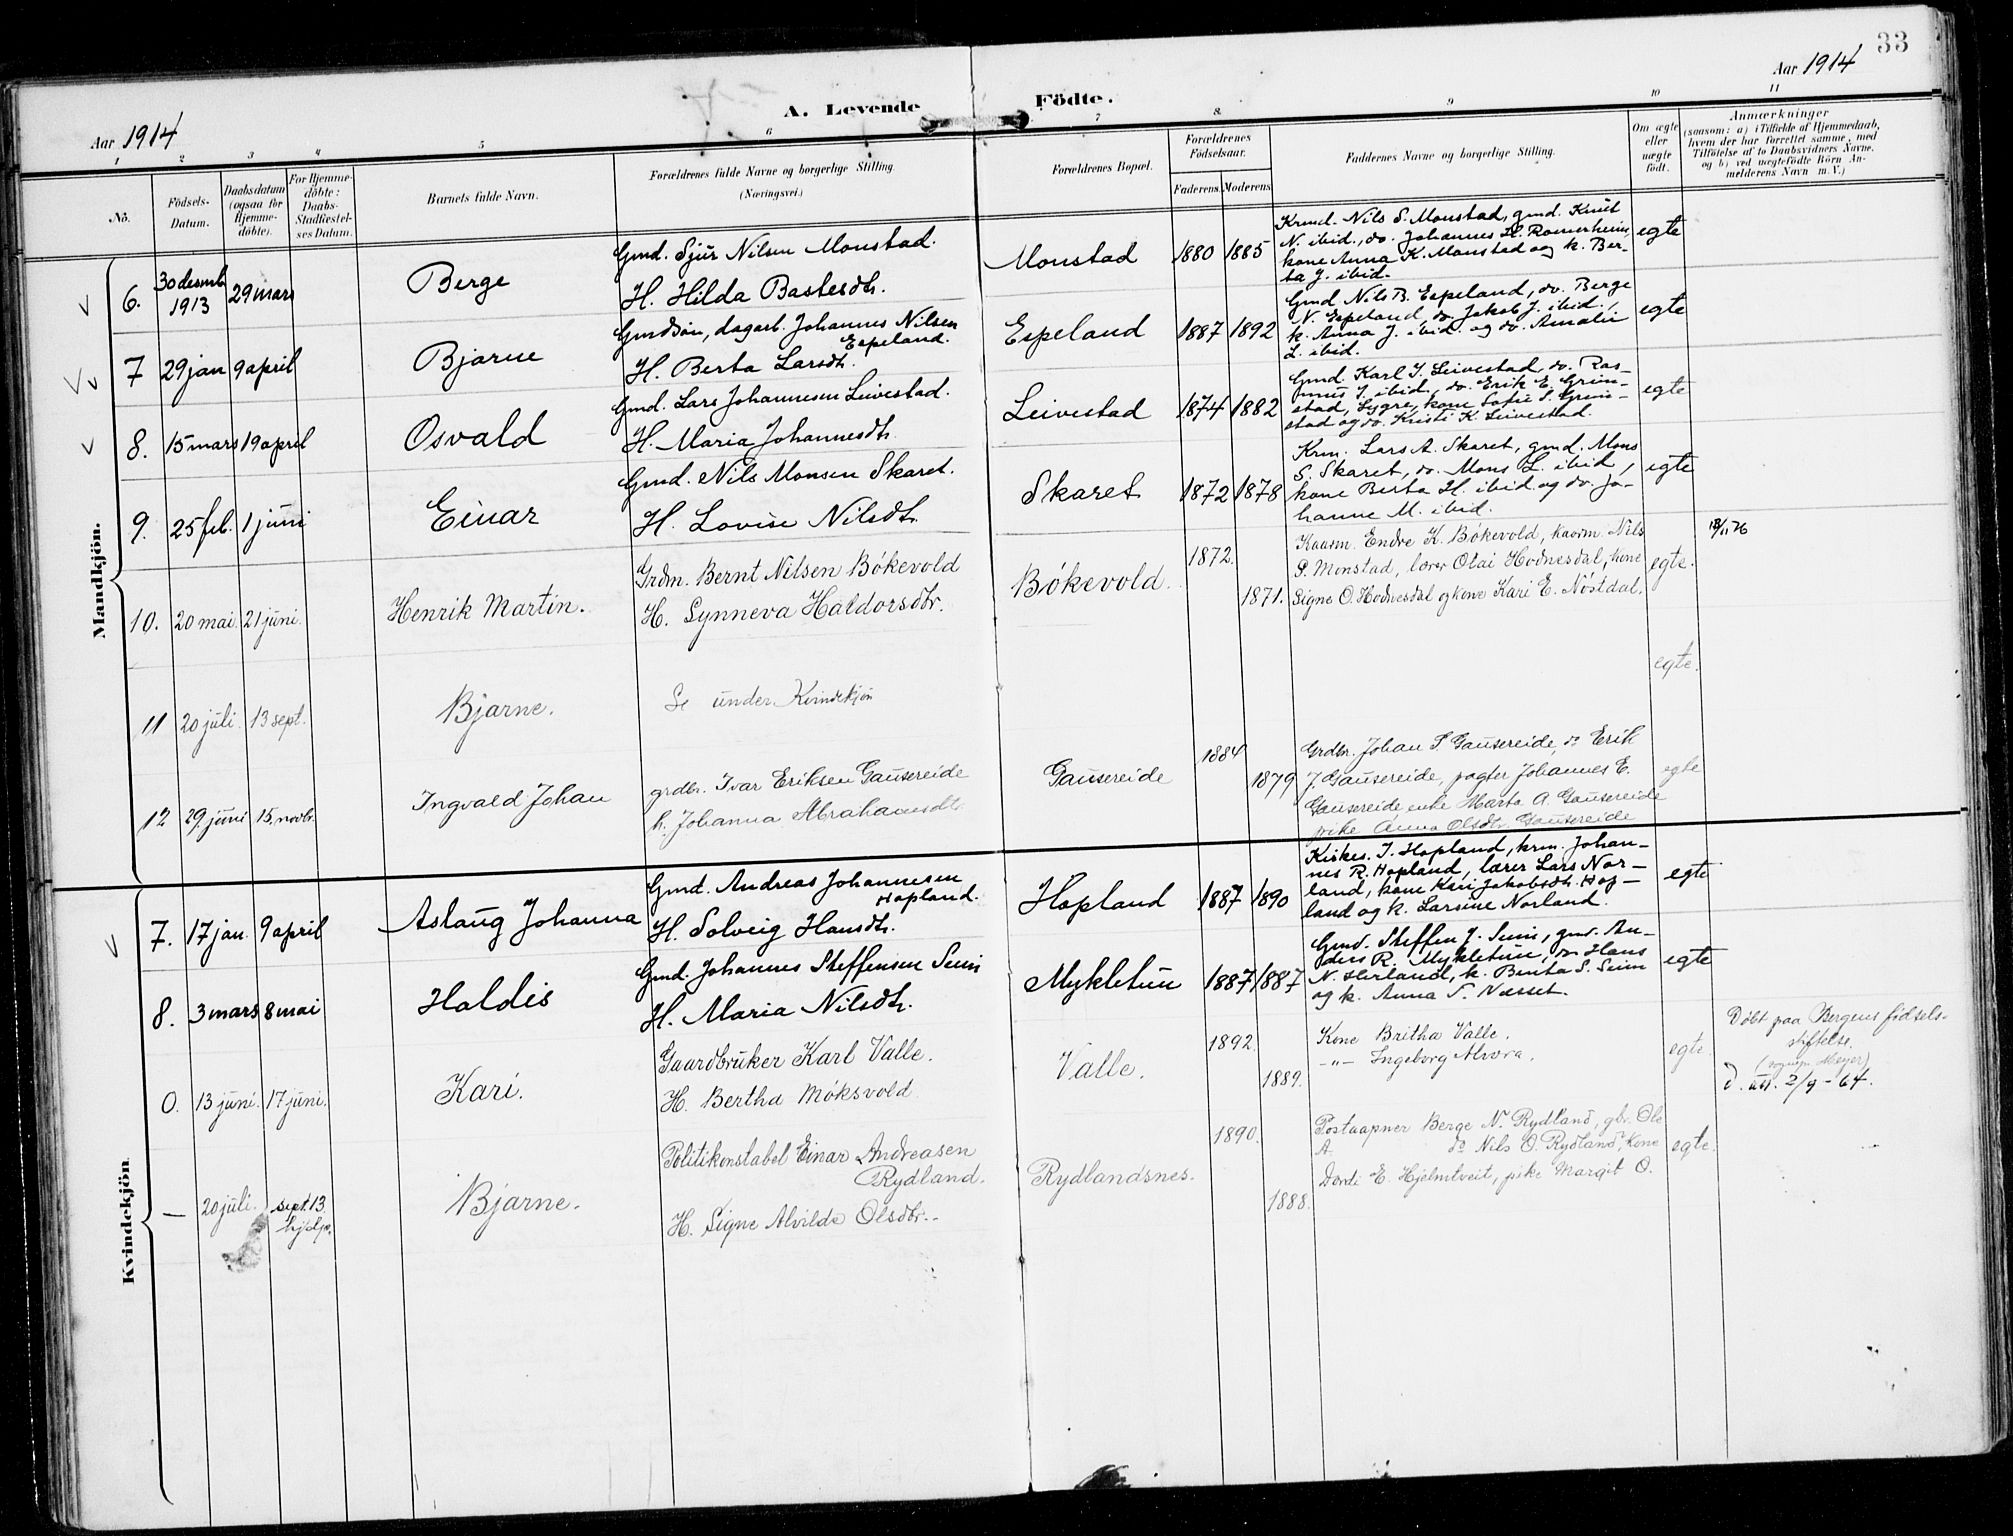 33
Aar 1914
A. Levende Födte.
Aar 1914
1 2 3 4 5 6 7 8 9 10 11
No.
Födsels-Datum.
Daabsdatum (ogsaa for Hjemme-döbte).
For Hjemme-döbte: Daabs-Stadfæstel-ses Datum.
Barnets fulde Navn.
Forældrenes fulde Navne og borgerlige Stilling.
(Næringsvei.)
Forældrenes Bopæl.
Forældrenes Födselsaar.
Faderens. Moderens.
Faddernes Navne og borgerlige Stilling.
Om ægte eller uægte födt.
Anmærkninger
(saasom: a) i Tilfælde af Hjemmedaab,
hvem der har forrettet samme, med
Tilföielse af to Daabsvidners Navne.
og b) ved uegtefödte Börn An-
melderens Navn m. V.)
Mandkjön.
6. 30 desmb. 1913 29 mars Berge
Gmd. Sjur Nilsen Monstad.
H. Hilda Bastesdtr.
Monstad 1880 1885
Krmd. Nils S. Monstad, gmd. Knut
N. ibid., do. Johannes H. Romerheim,
kone Anna K. Monstad og k. Ber-
ta J. ibid.
egte
7 29 jan 9 april Bjarne
Gmdsön, dagarb. Johannes Nilsen
Espeland.
H. Berta Larsdtr.
Espeland 1887 1892
Gmd. Nils B. Espeland, do. Berge
N. Espeland, do. Jakob J. ibid.,
k. Anna J. ibid. og do. Amalie
L. ibid.
egte
8. 15 mars 19 april Osvald
Gmd. Lars Johannesen Leivestad.
H. Maria Johannesdtr.
Leivestad 1874 1882
Gmd. Karl J. Leivestad, do. Ras-
mus J. ibid., do. Erik E. Grim-
stad, Sygre, kone Sofie S. Grim-
stad og do. Kristi K. Leivestad.
egte
9. 25 feb. 1 juni Einar
Gmd. Nils Monsen Skaret.
H. Lovise Nilsdtr.
Skaret 1872 1878
Krm. Lars A. Skaret, gmd. Mons
S. Skaret, do. Mons L. ibid,
kone Berta H. ibid. og do. Jo-
hanne M. ibid.
egte
10. 20 mai. 21 juni. Henrik Martin.
Grdm. Bernt Nilsen Bökevold
H. Synneva Haldorsdtr.
Bökevold. 1872. 1871.
Kaarm. Endre K. Bökevold, kaarm. Nils
P. Monstad, lærer Olai Hodnesdal, kone
Signe O. Hodnesdal og kone Kari E. Nöstdal.
egte.
11 20 juli. 13 sept. Bjarne.
Se under Kvindekjön
egte.
12 29. juni 15. novbr. Ingvald Johan
grdbr. Ivar Eriksen Gausereide
h. Johanna Abrahamsdtr.
Gausereide 1884 1879
Grdbr. Johan S Gausereide, do Erik
J. Gausereide, pagter Johannes E.
Gausereide enke Marta A. Gausereide
pike Anna Olsdtr Gausereide
egte
Kvindekjön
7. 17 jan. 9 april Aslaug Johanna
Gmd. Andreas Johannesen
Hopland.
H. Solveig Hansdtr.
Hopland 1887 1890
Kirkes. J. Hopland, krm. Johan-
nes R. Hopland, lærer Lars Nor-
land, kone Kari Jakobsdtr. Hop-
land og k. Larsine Norland.
egte
8. 3 mars 8 mai Haldis
Gmd. Johannes Steffensen Seim
H. Maria Nilsdtr.
Mykletun 1887 1887
Gmd. Steffen J. Seim, gmd. An-
ders R. Mykletun, do Hans
N. Herland, k. Berta S. Seim
og k. Anna S. Næsset.
egte
0. 13 juni. 17 juni. Kari.
Gaardbruker Karl Valle.
H. Bertha Möksvold.
Valle. 1892. 1889.
Kone Britha Valle.
-"- Ingeborg Alvera.
egte.
Döbt paa Bergens födsels-
stiftelse.
(sognepr. Meyer)
d. att. 2/9 - 64.
— 20 juli. sept. 13. hjslp. Bjarne.
Politikonstabel Einar Andreasen
Rydland.
H. Signe Alvilde Olsdtr.
Rydlandsnes. 1890. 1888.
Postaapner Berge N. Rydland, gbr. Ole
A. do Nils O. Rydland, Kone
Dordi E. Hjelmtveit, pike Margit O.
egte.